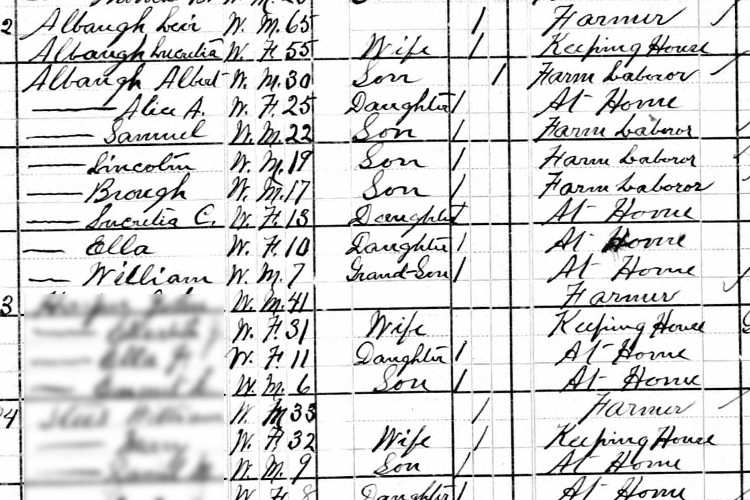 2 Albaugh Levi W. M. 65 / Farmer /
Albaugh Lucretia W. F. 55 Wife / Keeping House
Albaugh Albert W. M. 30 Son / Farm Laboror /
—— Alice A. W. F. 25 Daughter / At Home
—— Samuel W. M. 22 Son / Farm Laboror /
—— Lincoln W. M. 19 Son / Farm Laboror
—— Brough W. M. 17 Son / Farm Laboror
—— Lucretia C. W. F. 13 Daughter / At Home
—— Ella W. F. 10 Daughter / At Home
—— William W. M. 7 Grand-Son / At Home
3 W. M. 41 Farmer
W. F. 31 Wife Keeping House
W. F. 11 Daughter / At Home
W. M. 6 Son / At Home
4 W M 33 / Farmer /
W. F. 32 Wife / Keeping House
W. M. 9 Son / At Home
W F 8 Daughter / At Home